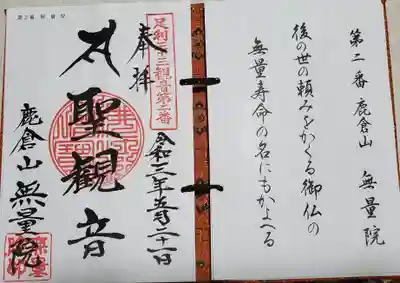 第二番 鹿倉山 無量院
後の世の頼みをかくる御仏の
無量寿命の名にもかよへる
足利三十三観音第二番
奉拝
令和三年五月二十一日
聖観音
鹿倉山 無量院